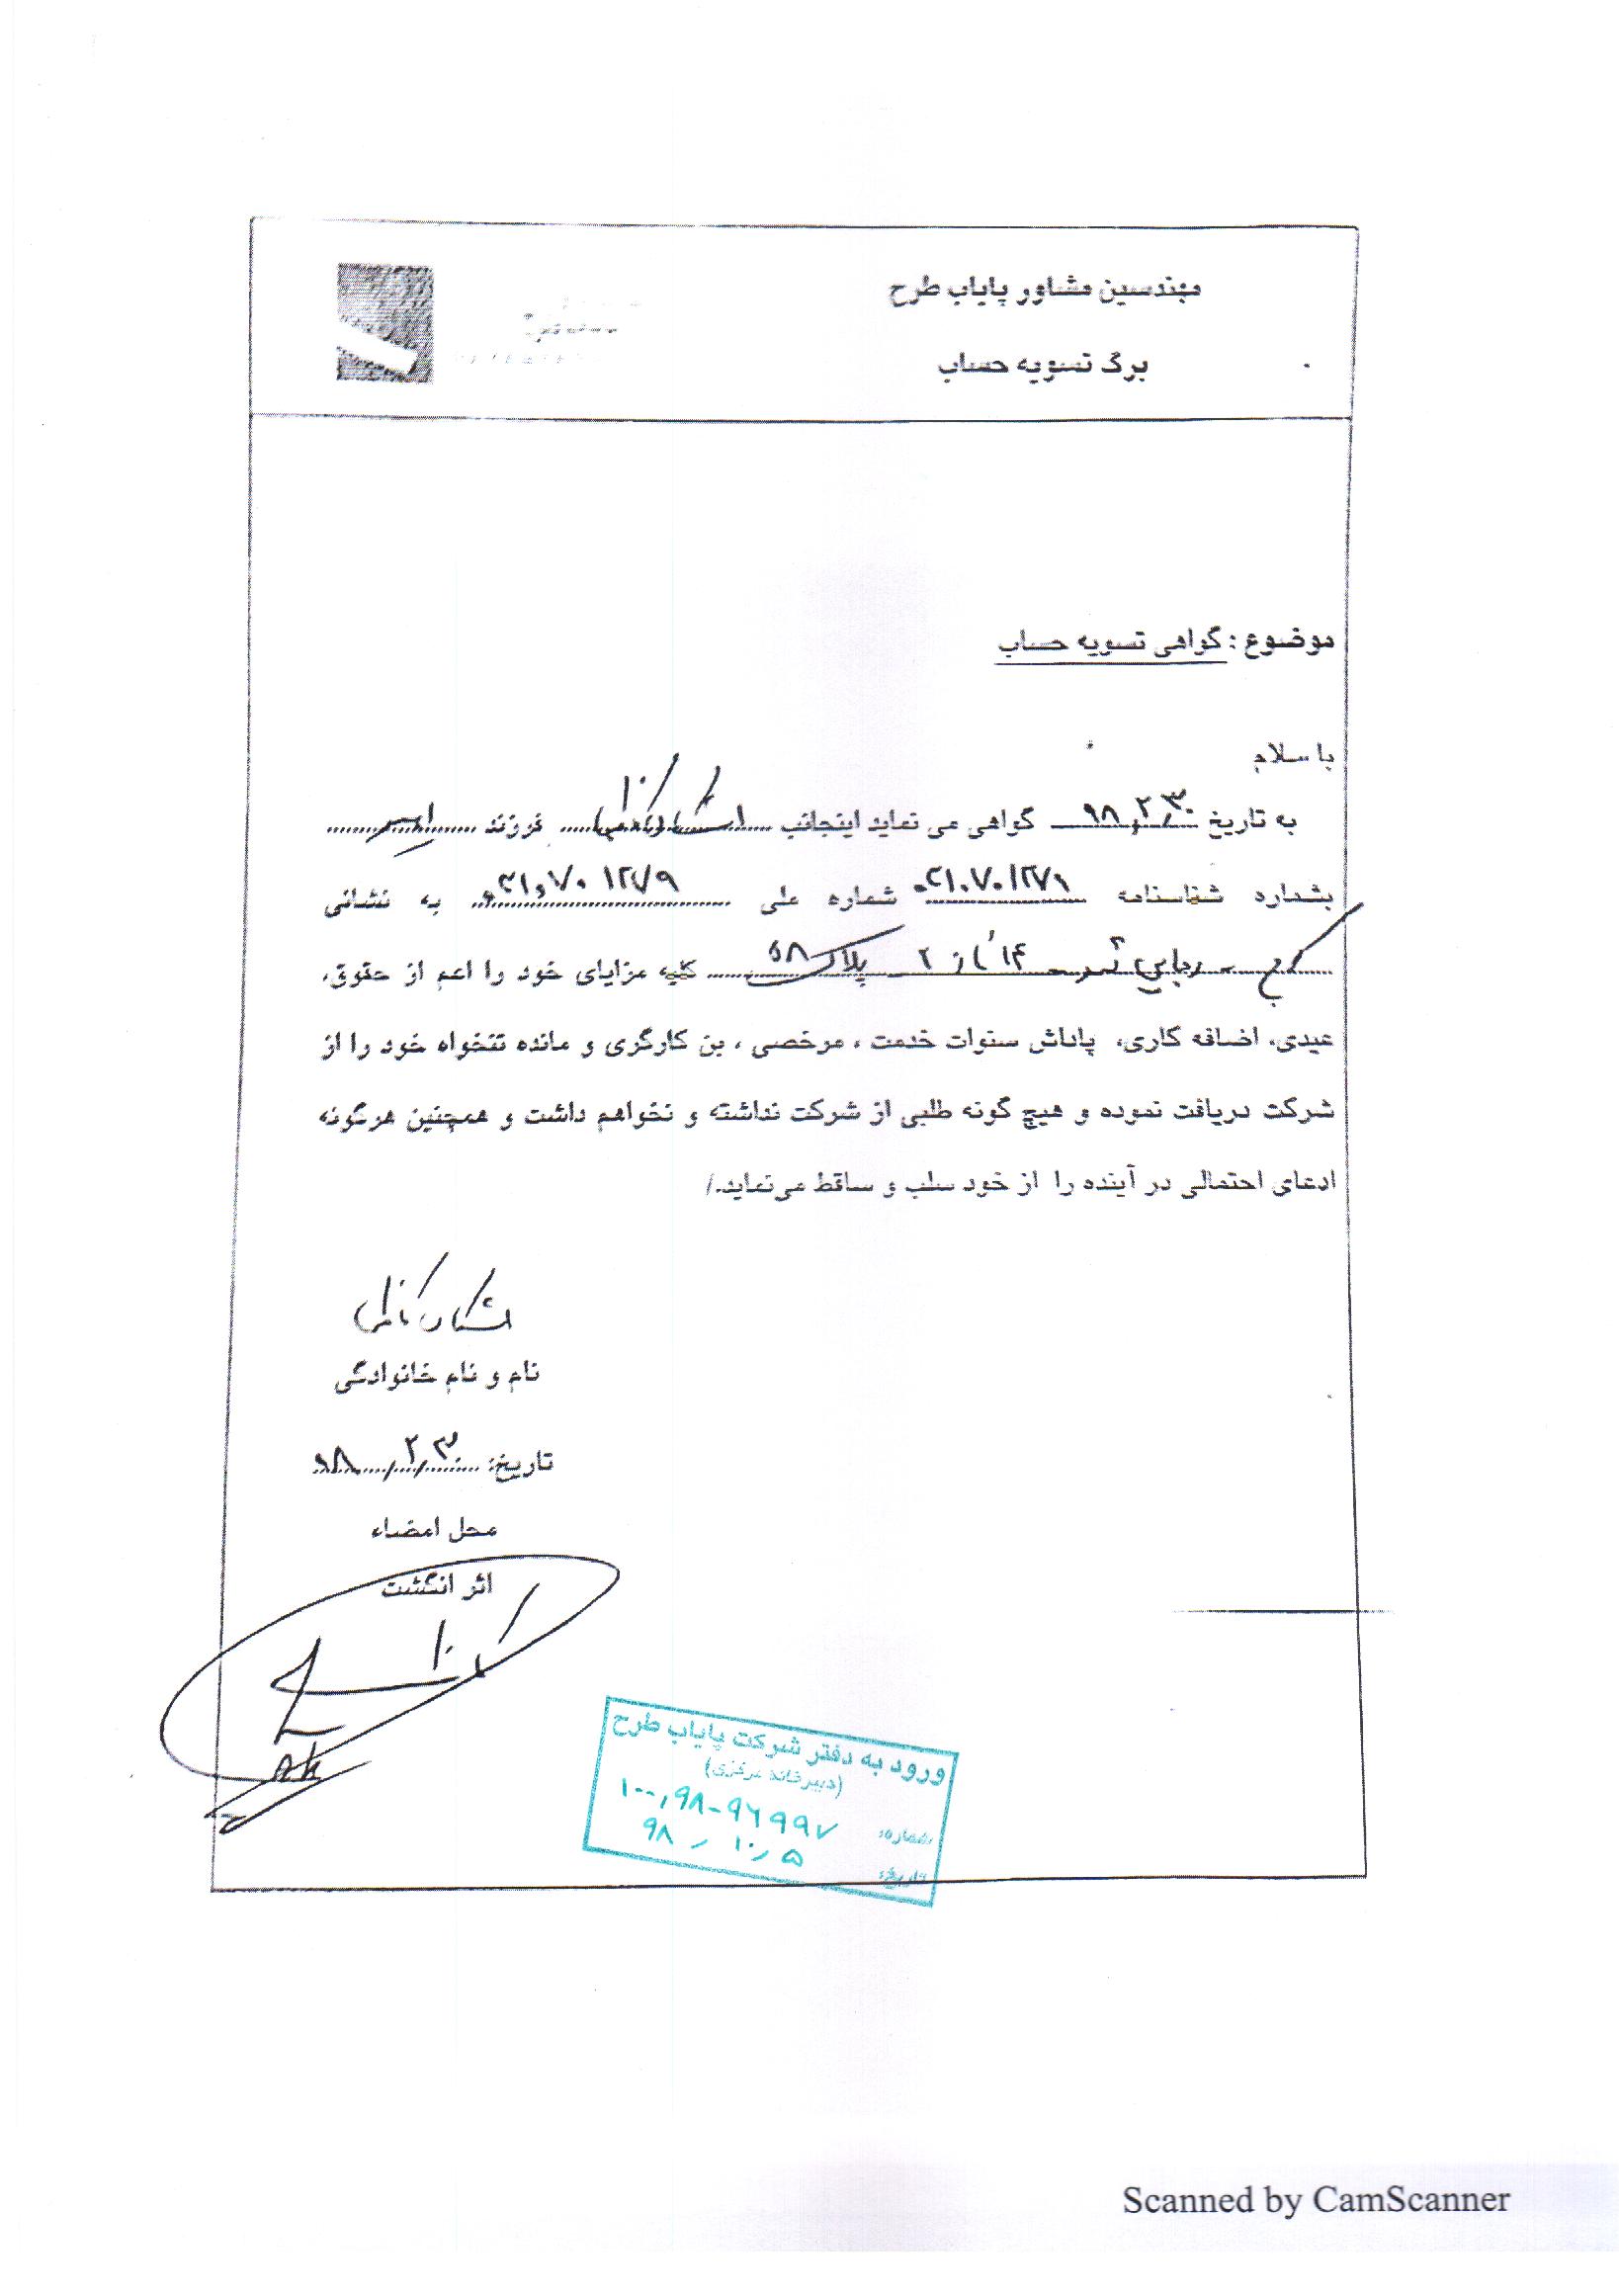 مهندسین مشاور پایاب طرح
برگ تسویه حساب
موضوع : گواهی تسویه حساب
با سلام
به تاریخ ۹۸,۲,۳۰ گواهی می نماید اینجانب فرزند
بشماره شناسنامه شماره ملی به نشانی
کرج - رجایی شهر - پلاک ۵۸ کلیه مزایای خود را اعم از حقوق،
عیدی، اضافه کاری، پاداش سنوات خدمت ، مرخصی ، بن کارگری و مانده تنخواه خود را از
شرکت دریافت نموده و هیچ گونه طلبی از شرکت نداشته و نخواهم داشت و همچنین هرگونه
ادعای احتمالی در آینده را از خود سلب و ساقط می‌نماید./
نام و نام خانوادگی
تاریخ: ۹۸,۲,۳۰
محل امضاء
اثر انگشت
ورود به دفتر شرکت پایاب طرح
(دبیرخانه مرکزی)
شماره: ۱۰۰,۹۸-۹۶۹۹۷
تاریخ: ۹۸,۱۰,۵
Scanned by CamScanner